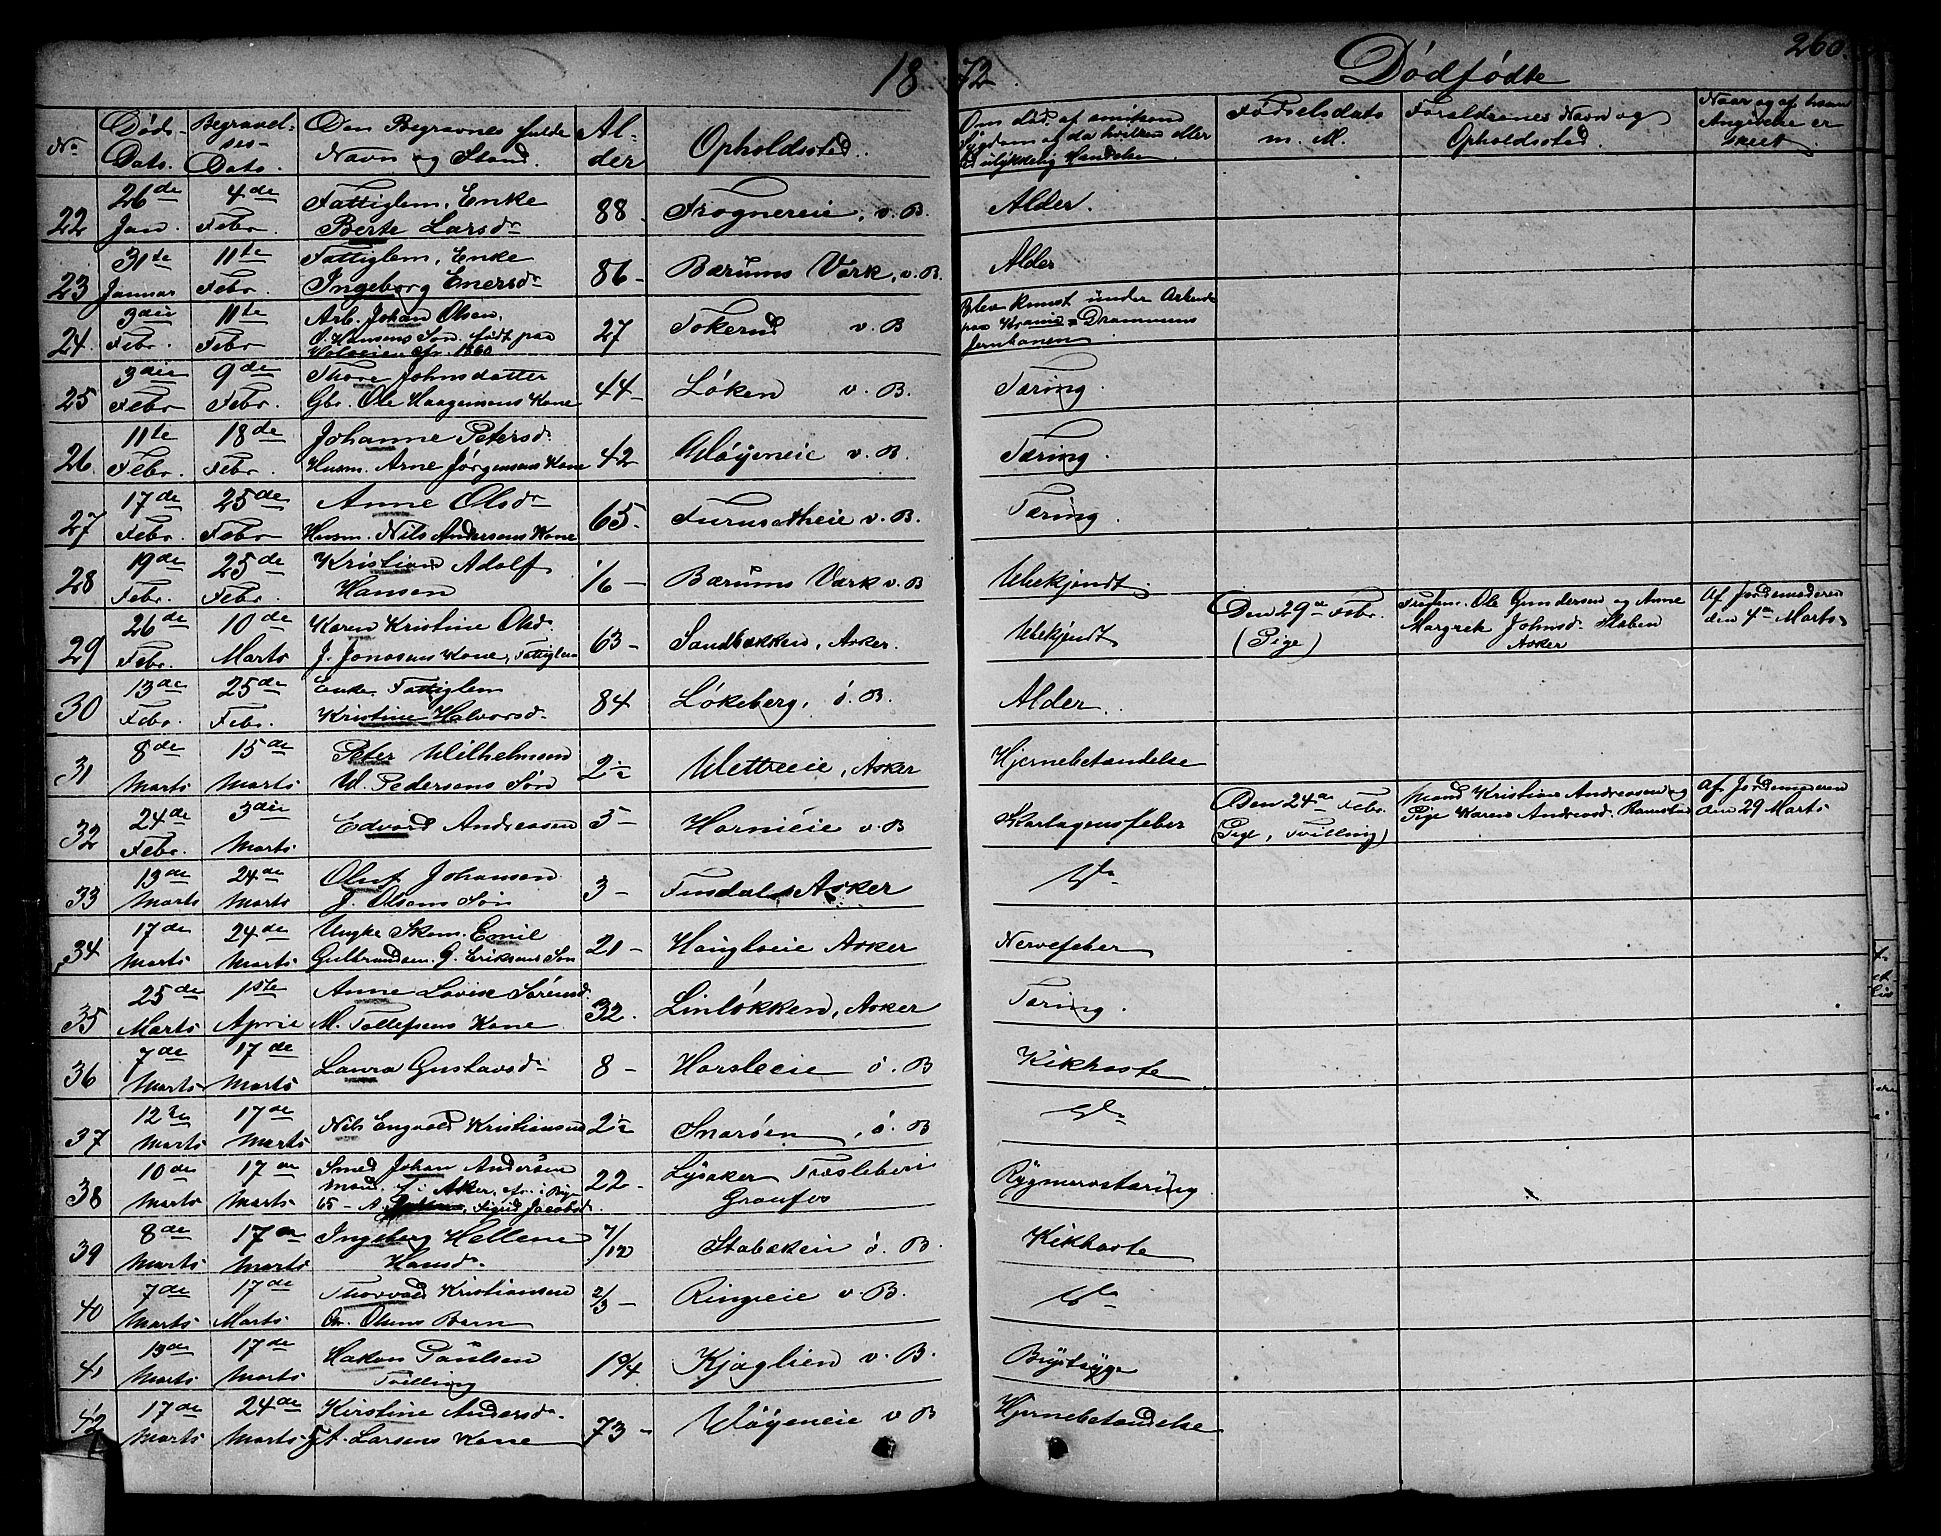 18 72 Dødfødte 260.
No Døds-Dato. Begravel-ses-Dato. Den Begravnes fulde Navn og Stand. Al-der Opholdssted. Om død af smitsom Sygdom af da hvilken eller ved ulykkelig Hændelse Fødselsdato m. M. Forældrenes Navn og Opholdssted. Naar og af hvem Angivelse er skeet.
22 26de Jan. 4de Febr. Fattiglem, Enke Berte Larsdr 88 - Frognereie, v. B. Alder.
23 31te Januar 11te Febr. Fattiglem, Enke Ingeborg Enersdr 86 - Bærums Værk, v. B. Alder
24. 3die Febr. 11te Febr Arb. Johan Olsen, O. Hansens Søn, født paa 1860 27 Tokerud v. B Blev knust under Arbeide paa Kra Drammens Jernbanen
25 3die Febr 9de Febr. Thore Johnsdatter Gbr. Ole Haagensens Kone 44 - Løken v. B. Tæring.
26 11te Febr. 18de Febr. Johanne Petersd. Husm. Arne Jørgensens Kone 42 Gløyeneie v. B. Tæring.
27 17de Febr. 25de Febr Anne Olsdr Husm. Nils Andersens Kone 65. Furusetheie v. B. Tæring.
28 19de Febr. 25de Febr. Kristian Adolf Hansen 1/6 - Bærums Værk v. B Ubekjendt.
29 26de Febr. 10de Marts Karen Kristine Olsdr J. Jonasens Kone, Fattiglem 63 - Sandbækken, Asker. Ubekjendt Den 29de Febr. (Pige) Ole Gundersen og Anne Margrete Johnsd. Staben Asker Af Jordemoderen den 4de Marts
30 13de Febr. 25de Febr. Enke Fattiglem Kristine Halvorsd. 84 Løkeberg, ö. B. Alder.
31 8de Marts 15de Marts Peter Wilhelmsen W. Pedersens Søn 2 1/2 Wettreeie, Asker Hjernebetændelse
32 24de Febr. 3die Marts Edvard Andreasen 5 - Hornieie v. B Skarlagensfeber Den 24de Febr. (Pige, Tvilling) Mand Kristian Andreasen og Pige Karen Andreasd. Ramstad Af Jordemoderen den 29 Marts
33 13de Marts 24de Marts Oluf Johansen J. Olsens Søn 3 - Asker Do
34 17de Marts 24de Marts Ungke. Skom. Emil Gulbrandsen. G. Eriksens Søn 21 - Haugboeie Asker Nervefeber
35 25de Marts 1ste April Anne Lovise Sørensd. M. Tollefsens Kone 32. Linløkken, Asker Tæring.
36 7de Marts 17de Marts Laura Gustavsdr 8 - Horsleeie ö. B Kikhoste
37 12te Marts 17de Marts Nils Engvald Kristiansen 2 1/2 Snarøen, ö. B Do
38 10de Marts 17de Marts Smed Johan Andersen Asker, 65 - A. Sigrid Jacobsd. 22 - Lysaker Træsleberi Granfos Rygmarvstæring
39 8de Marts 17de Marts Ingeborg Hellene Hansdr. 7/12 Stabækeie ö. B. Kikhoste
40 7de Marts 17de Marts Thorvald Kristiansen Chr. Olsens Barn 2/3 - Ringieie v B. Do
41 13de Marts 17de Marts Hakon Paulsen Tvilling 1 3/4 Kjaglien v. B. Brystsyge
42 17de Marts 24de Marts Kirstine Andersdr. Larsens Kone 73 - Gløyeneie v B Hjernebetændelse